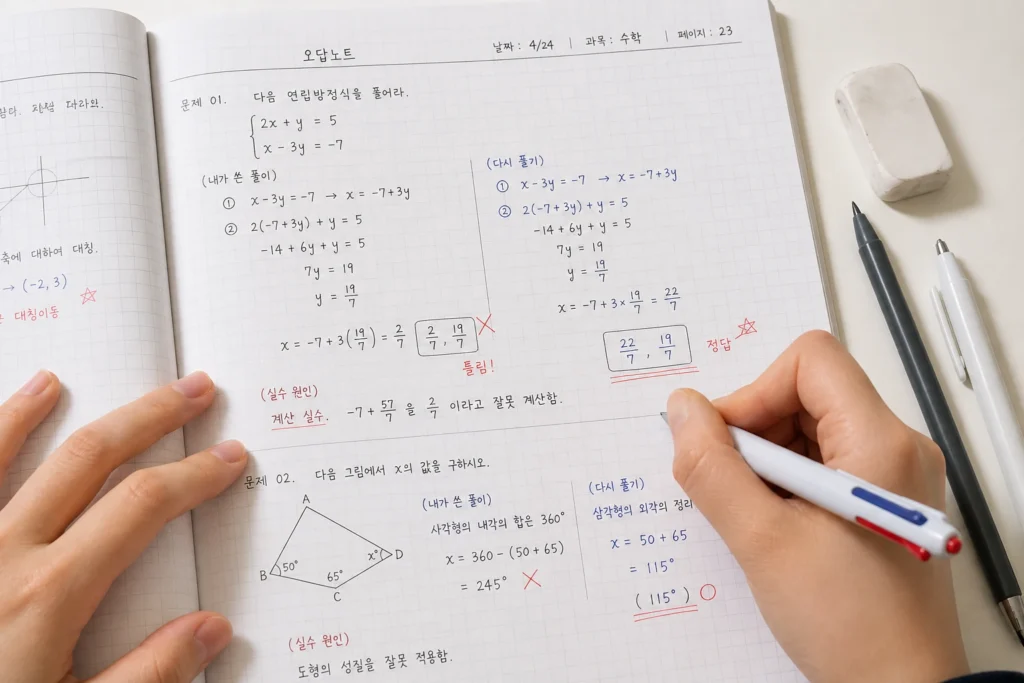 따라와.
축에 대하여 대칭.
→ (-2, 3)
대칭이동
오답노트
날짜 : 4/24 | 과목 : 수학 | 페이지 : 23
문제 01. 다음 연립방정식을 풀어라.
2x + y = 5
x - 3y = -7
(내가 쓴 풀이)
① x - 3y = -7 → x = -7+3y
② 2(-7+3y) + y = 5
-14 + 6y + y = 5
7y = 19
y = 19/7
x = -7 + 3(19/7) = 2/7 2/7, 19/7
틀림!
(다시 풀기)
① x - 3y = -7 → x = -7+3y
② 2(-7+3y) + y = 5
-14 + 6y + y = 5
7y = 19
y = 19/7
x = -7 + 3 × 19/7 = 22/7
22/7, 19/7 정답
(실수 원인)
계산 실수. -7 + 57/7 을 2/7 이라고 잘못 계산함.
문제 02. 다음 그림에서 x의 값을 구하시오.
A
B 50°
65°
C
x° D
(내가 쓴 풀이)
사각형의 내각의 합은 360°
x = 360 - (50 + 65)
= 245°
(다시 풀기)
삼각형의 외각의 정리
x = 50 + 65
= 115°
( 115° )
(실수 원인)
도형의 성질을 잘못 적용함.